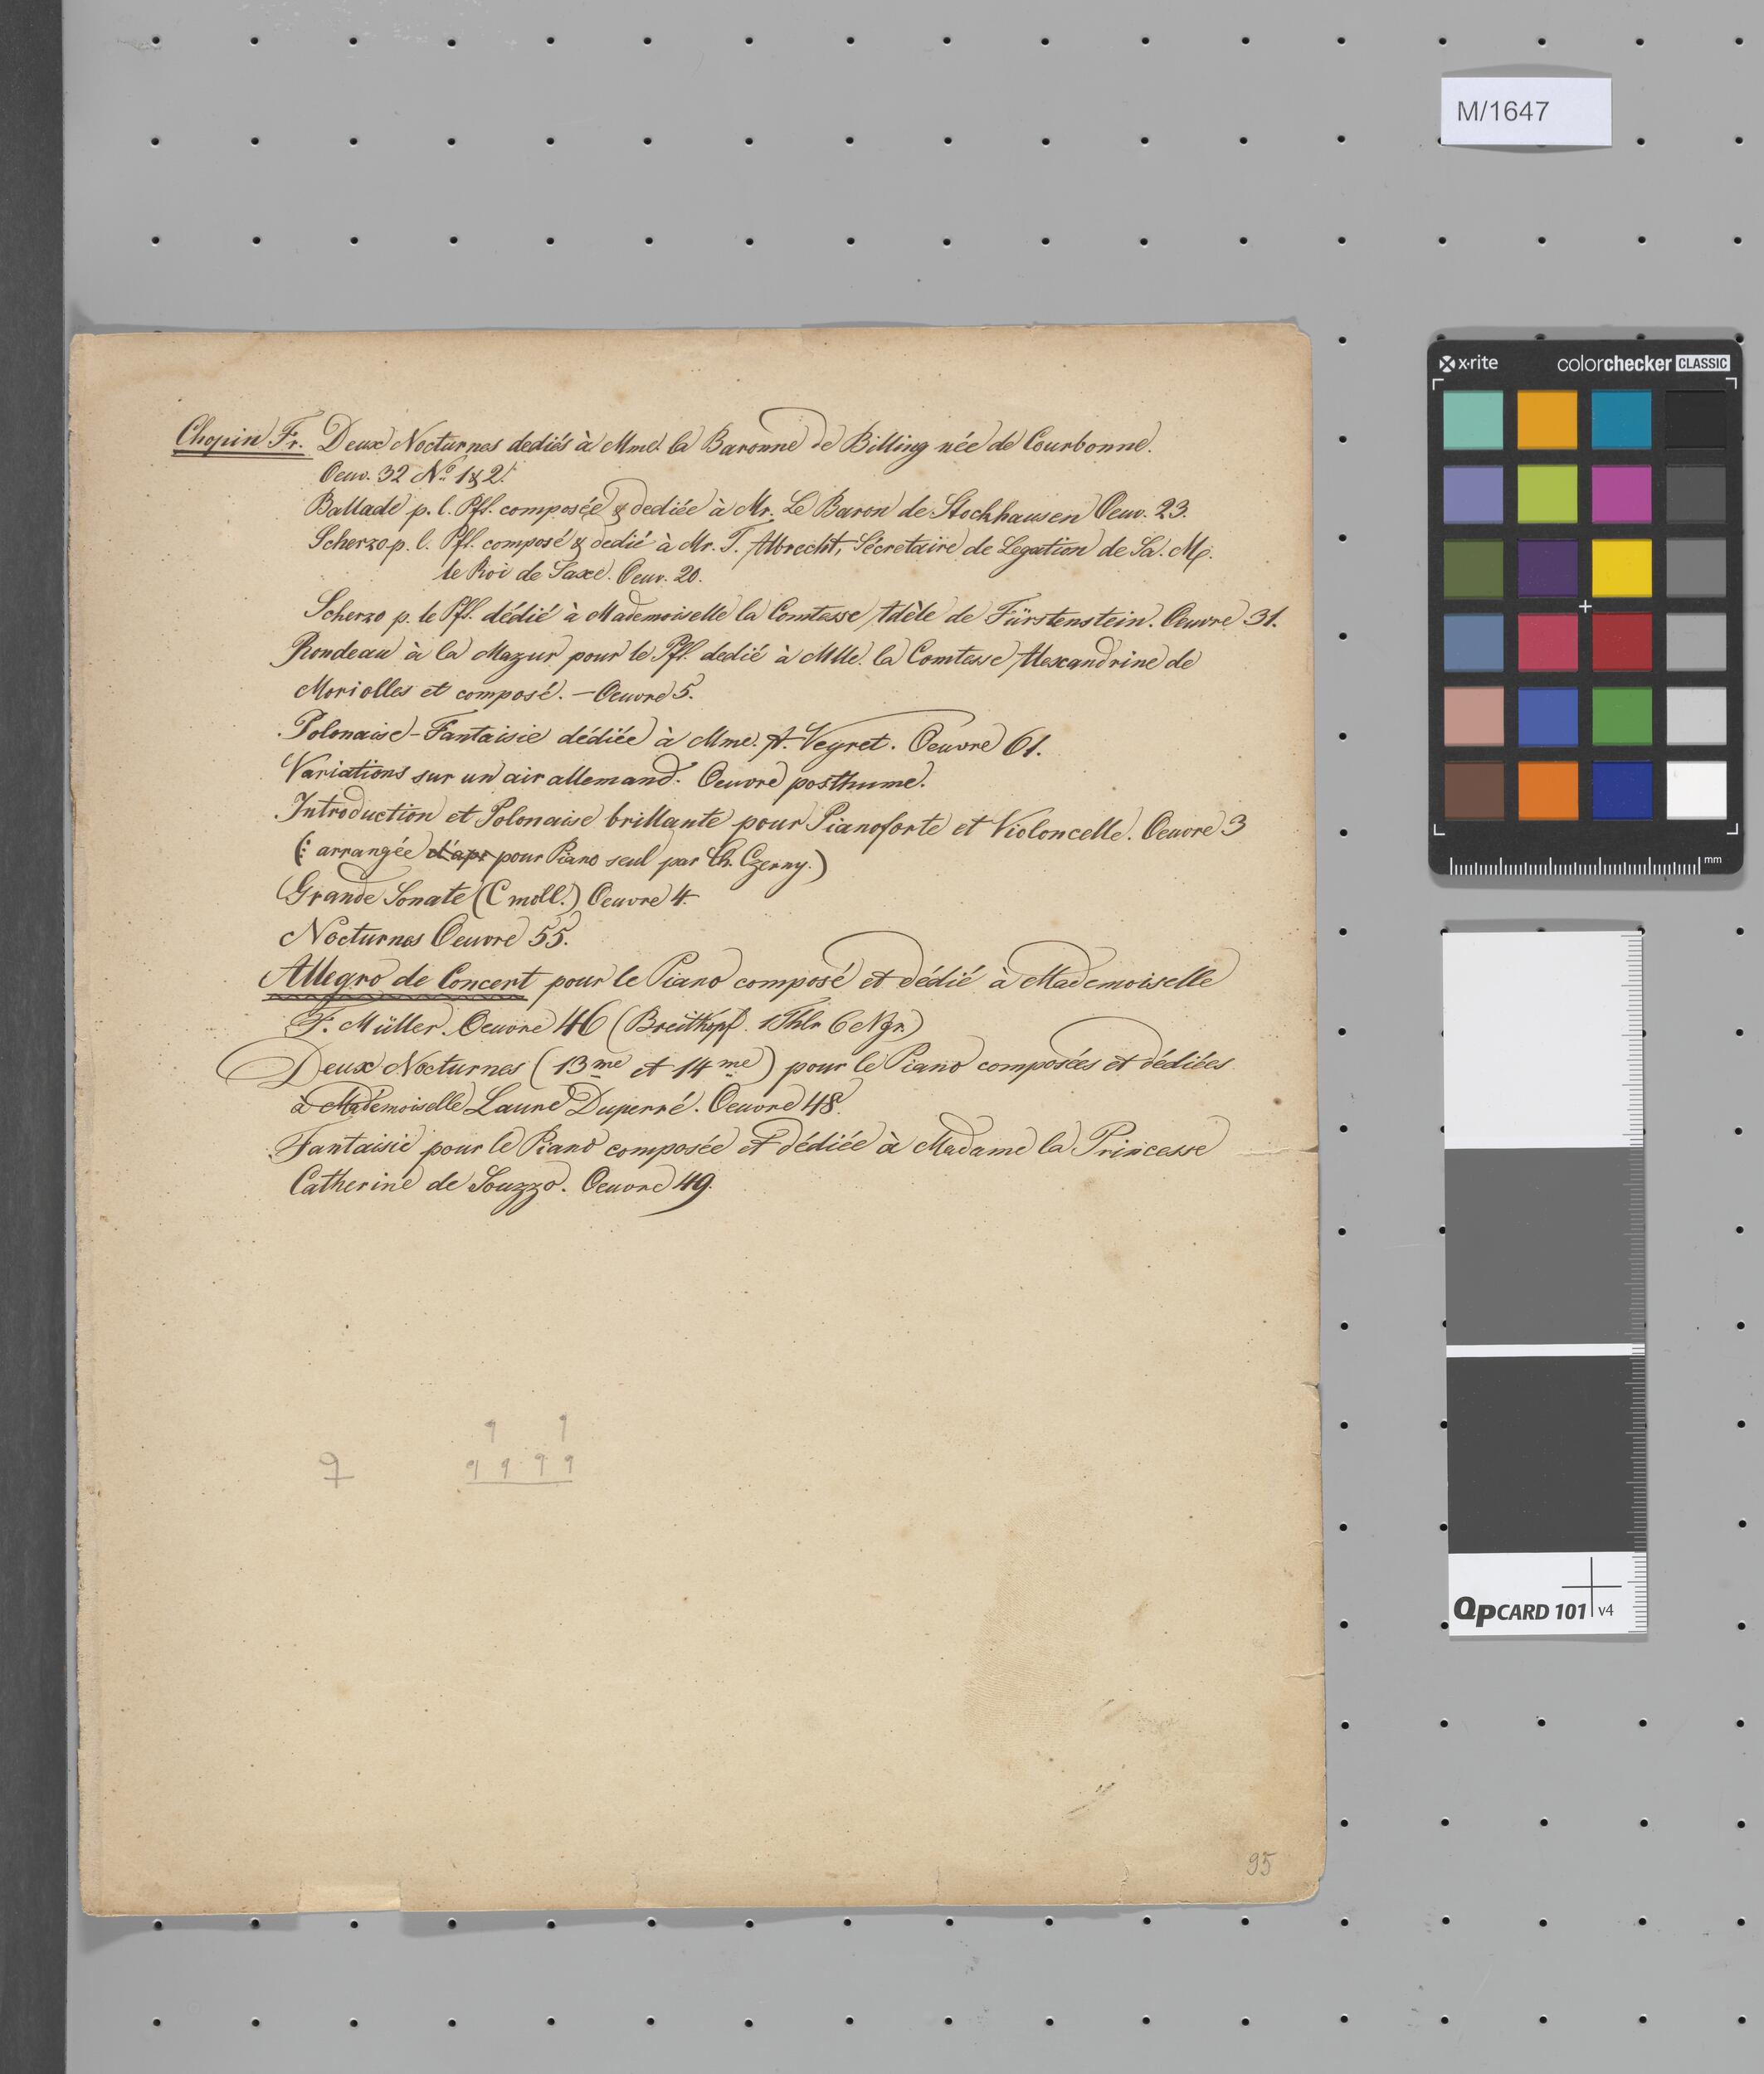 M/1647
x·rite colorchecker CLASSIC
Chopin Fr. Deux Nocturnes dediés à Mme. la Baronne de Billing née de Courbonne.
Oeuv. 32 No. 1 & 2.
Ballade p. l. Pfl. composée & dediée à Mr. Le Baron de Stockhausen Oeuv. 23.
Scherzo p. l. Pfl. composé & dedié à Mr. T. Albrecht, Sécretaire de Legation de Sa. Mj.
le Roi de Saxe. Oeuv. 20.
Scherzo p. le Pfl. dédié à Mademoiselle la Comtesse Adèle de Fürstenstein. Oeuvre 31.
Rondeau à la Mazur pour le Pfl. dedié à Mlle. la Comtesse Alexandrine de
Moriolles et composé. — Oeuvre 5.
Polonaise-Fantaisie dédiée à Mme. A. Veyret. Oeuvre 61.
Variations sur un air allemand. Oeuvre posthume.
Introduction et Polonaise brillante pour Pianoforte et Violoncelle. Oeuvre 3
(: arrangée d'apr pour Piano seul par Ch. Czerny.)
Grande Sonate (C moll.) Oeuvre 4.
Nocturnes Oeuvre 55.
Allegro de Concert pour le Piano composé et dédié à Mademoiselle
F. Müller. Oeuvre 46 (Breitkopf. 1 Thlr 6 Ngr.)
Deux Nocturnes (13me et 14me) pour le Piano composées et dédiées
à Mademoiselle Laure Duperré. Oeuvre 48.
Fantaisie pour le Piano composée et dédiée à Madame la Princesse
Catherine de Souzzo. Oeuvre 49.
9 9
9 9 9 9 9
95
mm
QpCARD 101 v4